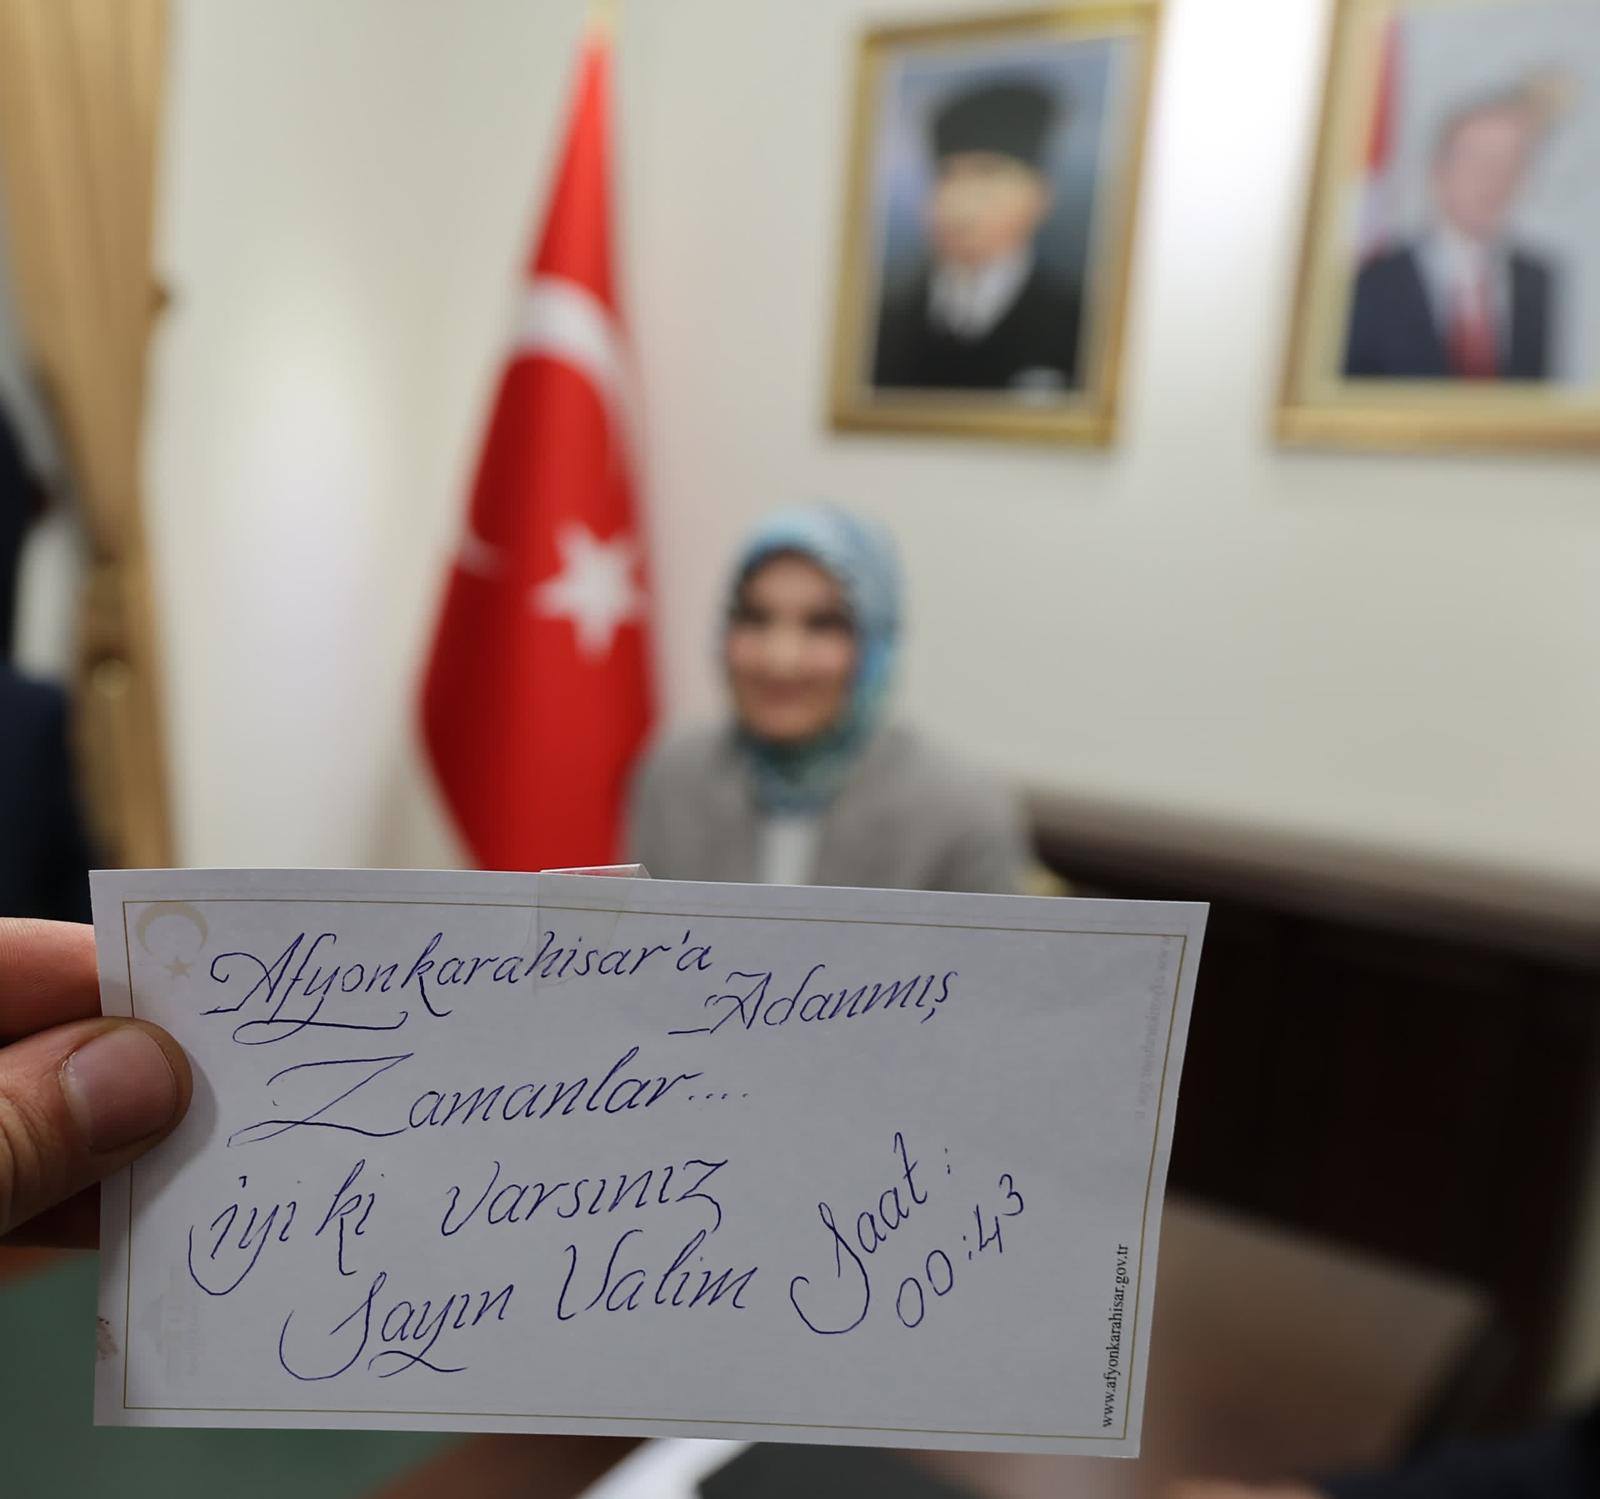 Afyonkarahisar'a
Adanmış
Zamanlar....
iyi ki varsınız
Sayın Valim
Saat :
00:43
www.afyonkarahisar.gov.tr